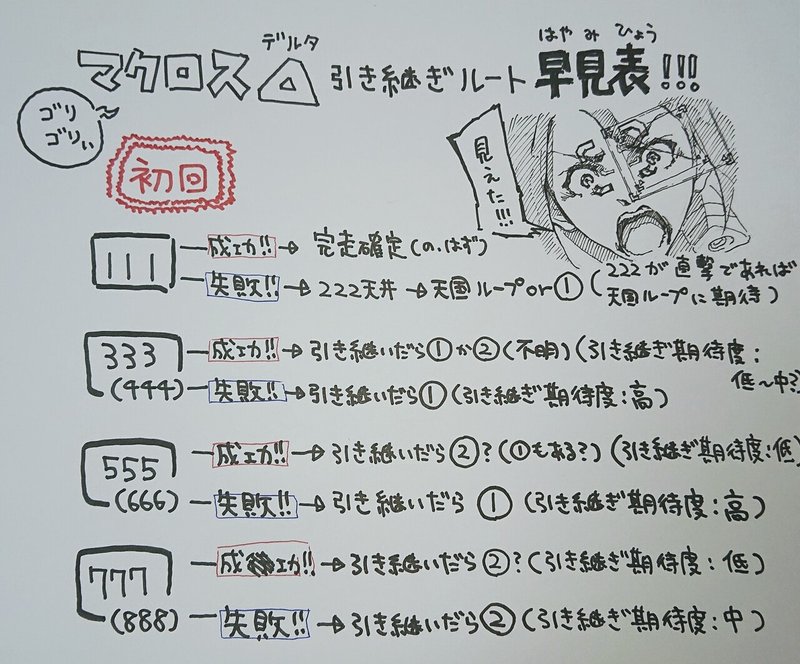 デルタ
はやみひょう
マクロス△ 引き継ぎルート 早見表!!!
ゴリ
ゴリぃ
見えた!!!
初回
111 成功!! → 完走確定(の.はず)
失敗!! → 222天井 → 天国ループor① (222が直撃であれば
天国ループに期待)
333 成功!! → 引き継いだら①か②(不明)(引き継ぎ期待度:
低~中?)
(444) 失敗!! → 引き継いだら①(引き継ぎ期待度:高)
555 成功!! → 引き継いだら②?(①もある?)(引き継ぎ期待度:低)
(666) 失敗!! → 引き継いだら ① (引き継ぎ期待度:高)
777 成功!! → 引き継いだら②?(引き継ぎ期待度:低)
(888) 失敗!! → 引き継いだら②(引き継ぎ期待度:中)